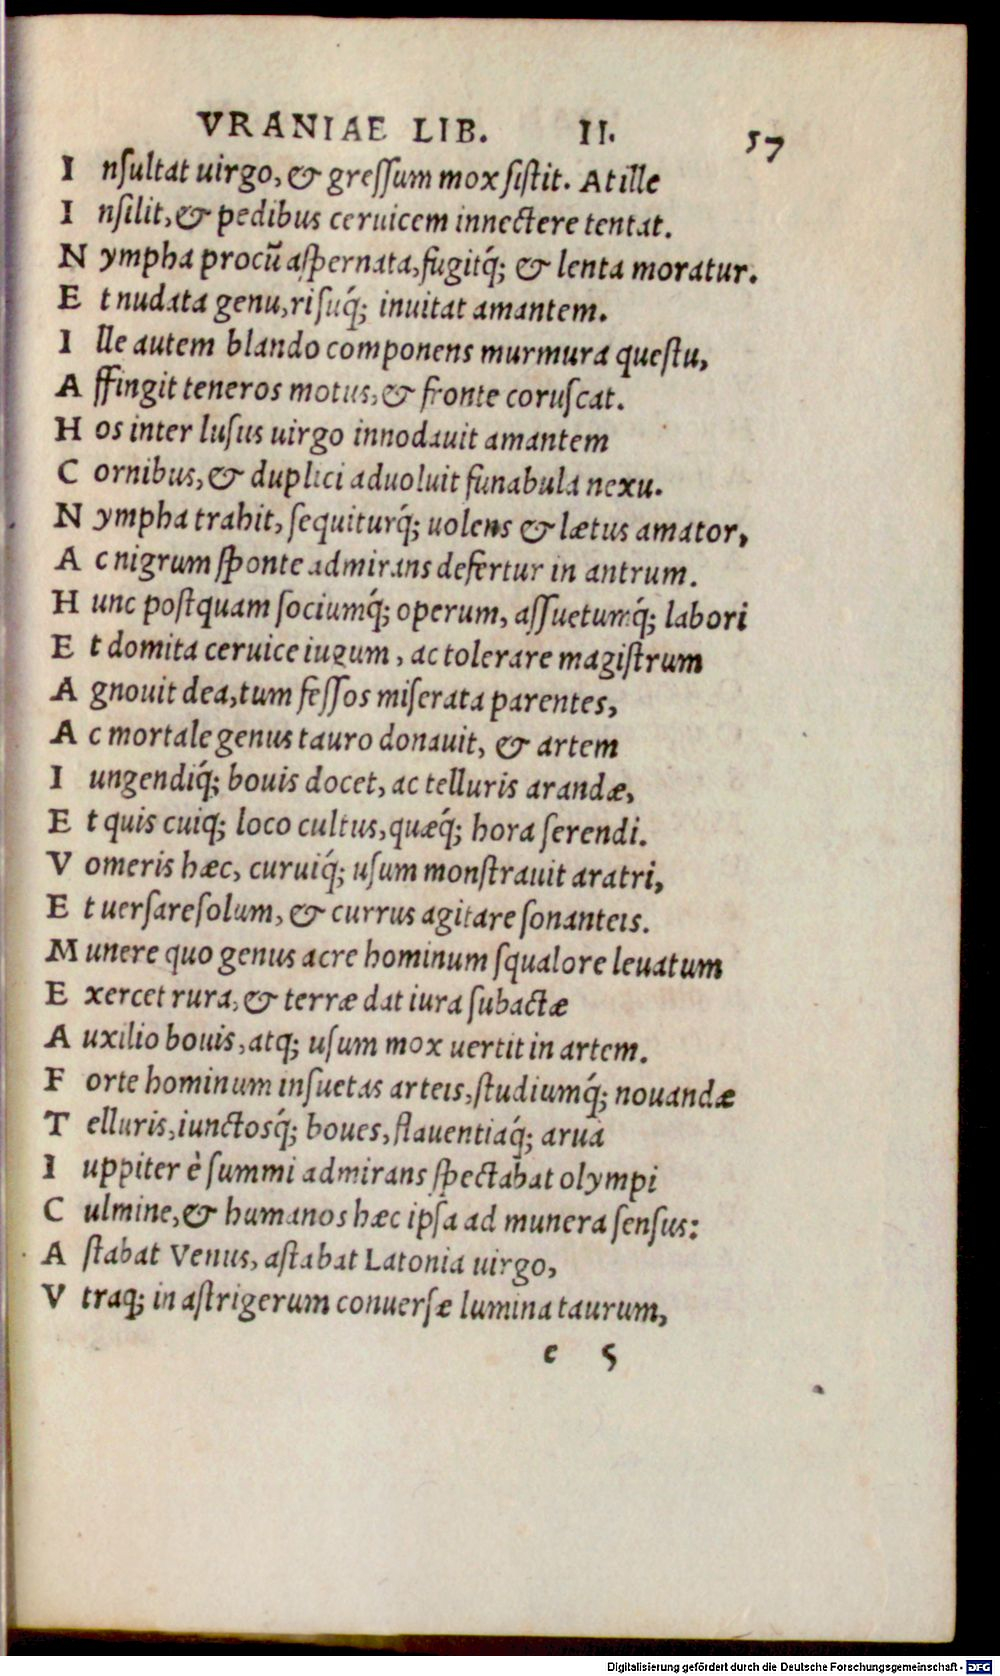 VRANIAE LIB. II. 57
I nſultat uirgo, & greſſum mox ſiſtit. At ille
I nſilit, & pedibus ceruicem innectere tentat.
N ympha procũ aſpernata, fugitq́; & lenta moratur.
E t nudata genu, riſuq́; inuitat amantem.
I lle autem blando componens murmura queſtu,
A ffingit teneros motus, & fronte coruſcat.
H os inter luſus uirgo innodauit amantem
C ornibus, & duplici aduoluit funabula nexu.
N ympha trahit, ſequiturq́; uolens & lætus amator,
A c nigrum ſponte admirans defertur in antrum.
H unc poſtquam ſociumq́; operum, aſſuetumq́; labori
E t domita ceruice iugum, ac tolerare magiſtrum
A gnouit dea, tum feſſos miſerata parentes,
A c mortale genus tauro donauit, & artem
I ungendiq́; bouis docet, ac telluris arandæ,
E t quis cuiq; loco cultus, quæq́; hora ſerendi.
V omeris hæc, curuiq́; uſum monſtrauit aratri,
E t uerſare ſolum, & currus agitare ſonanteis.
M unere quo genus acre hominum ſqualore leuatum
E xercet rura, & terræ dat iura ſubactæ
A uxilio bouis, atq; uſum mox uertit in artem.
F orte hominum inſuetas arteis, ſtudiumq́; nouandæ
T elluris, iunctosq́; boues, flauentiaq́; arua
I uppiter è ſummi admirans ſpectabat olympi
C ulmine, & humanos hæc ipſa ad munera ſenſus:
A ſtabat Venus, aſtabat Latonia uirgo,
V traq; in aſtrigerum conuerſæ lumina taurum,
e 5
Digitalisierung gefördert durch die Deutsche Forschungsgemeinschaft - DFG